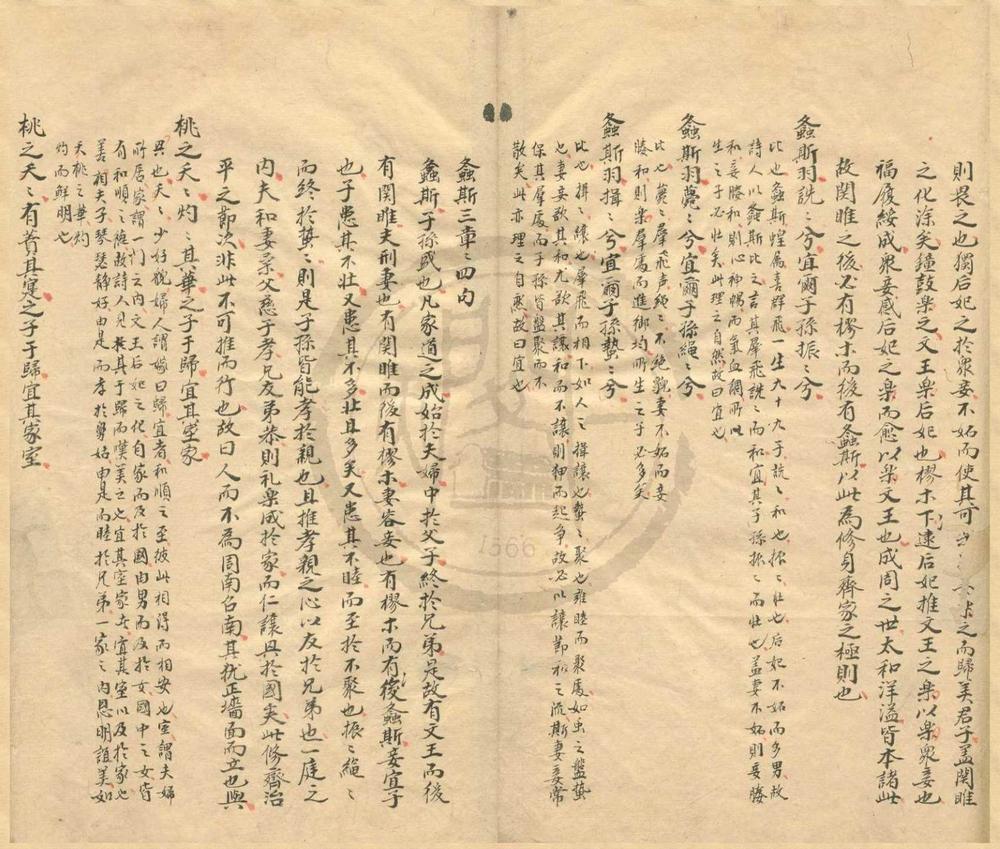 則畏之也獨后妃之於衆妾不妬而使其可之而歸美君子盖関雎
之化深矣鐘鼓楽之文王楽后妃也樛木下逮后妃推文王之楽以楽衆妾也
福履綏成衆妾感后妃之楽而愈以楽文王也成周之世太和洋溢皆本諸此
故関雎之後必有樛木而後有螽斯以此為修身齊家之極則也
螽斯羽詵〻兮宜爾子孫振〻兮
比也螽斯蝗属喜群飛一生九十九子詵〻和也振〻壮也后妃不妬而多男故
詩人以螽斯比之言其羣飛詵〻而和宜其子孫振〻而壮也盖妻不妬則妾媵
和妾媵和則心神暢而氣血調所以
生之子必壮矣此理之自然故曰宜也
螽斯羽薨〻兮宜爾子孫繩〻兮
比也薨〻羣飛声繩〻不絶貌妻不妬而妾
媵和則楽羣處而進御均所生之子必多矣
螽斯羽揖〻兮宜爾子孫蟄〻兮
比也揖〻讓也羣飛而相下如人之揖讓也蟄〻聚也雍睦而聚處如虫之盤蟄
也妻妾欲其和尤欲其讓和而不讓則狎而起争故必以讓節和之流斯妻妾常
保其羣處而子孫皆盤聚而不
散矣此亦理之自然故曰宜也
螽斯三章〻四句
螽斯子孫盛也凡家道之成始於夫婦中於父子終於兄弟是故有文王而後
有関雎夫刑妻也有関雎而後有樛木妻容妾也有樛木而有後螽斯妾宜子
也子患其不壮又患其不多壮且多矣又患其不睦而至於不聚也振〻繩〻
而終於蟄〻則是子孫皆能孝於親也且推孝親之心以友於兄弟也一庭之
内夫和妻柔父慈子孝兄友弟恭則礼楽成於家而仁讓興於國矣此修齊治
平之節次非此不可推而行也故曰人而不為周南召南其犹正墻面而立也與
桃之夭〻灼〻其華之子于歸宜其室家
興也夭〻少好貌婦人謂嫁曰歸宜者和順之至彼此相得而相安也室謂夫婦
所居家謂一門之内文王后妃之化自家而及於國由男而及於女國中之女皆
有和順之德故詩人見其于歸而嘆美之也宜其室家者宜其室以及於家也
善相夫子琴瑟静好由是而孝於舅姑由是而睦於兄弟一家之内恩明誼美如
夭桃之華灼
灼而鮮明也
桃之夭〻有蕡其実之子于歸宜其家室